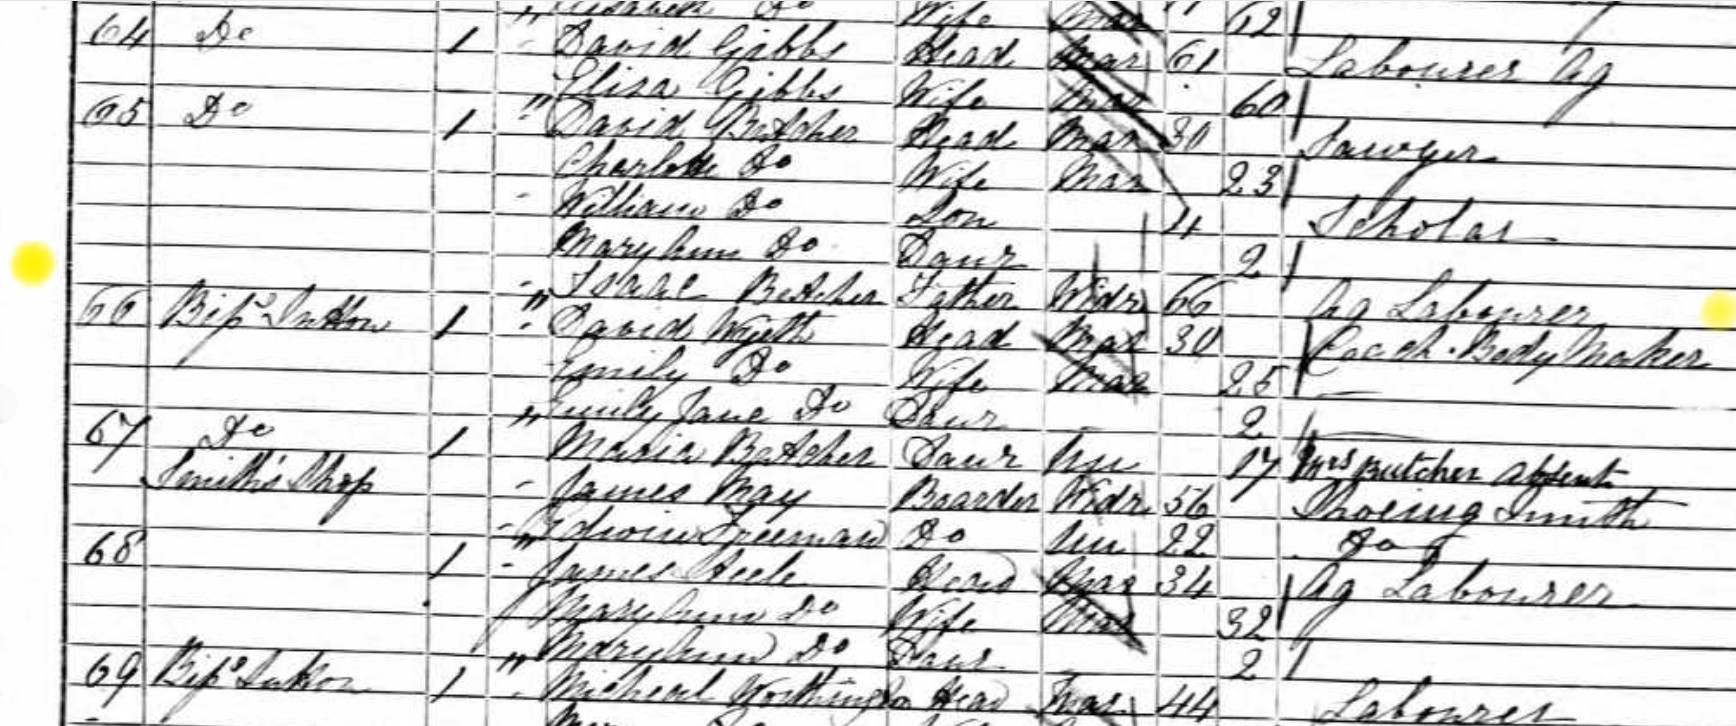 Do Wife Mar 62
64 Do 1 David Gibbs Head Mar 61 Labourer Ag
Eliza Gibbs Wife Mar 60
65 Do 1 David Butcher Head Mar 30 Sawyer
Charlotte Do Wife Mar 23
William Do Son 4 Scholar
Mary Ann Do Daur 2
Isaac Butcher Father Widr 66 Ag Labourer
66 Bips Sutton 1 David Wyeth Head Mar 30 Coach Body Maker
Emily Do Wife Mar 25
Emily Jane Do Daur 2
67 Do 1 Maria Butcher Daur Un 17 Mrs Butcher absent
Smith's Shop James May Boarder Widr 56 Shoeing Smith
Edwin Freeman Do Un 22 Do
68 1 James Steele Head Mar 34 Ag Labourer
Mary Ann Do Wife Mar 32
Mary Ann Do Daur 2
69 Bips Sutton 1 Micheal Worthington Head Mar 44 Labourer